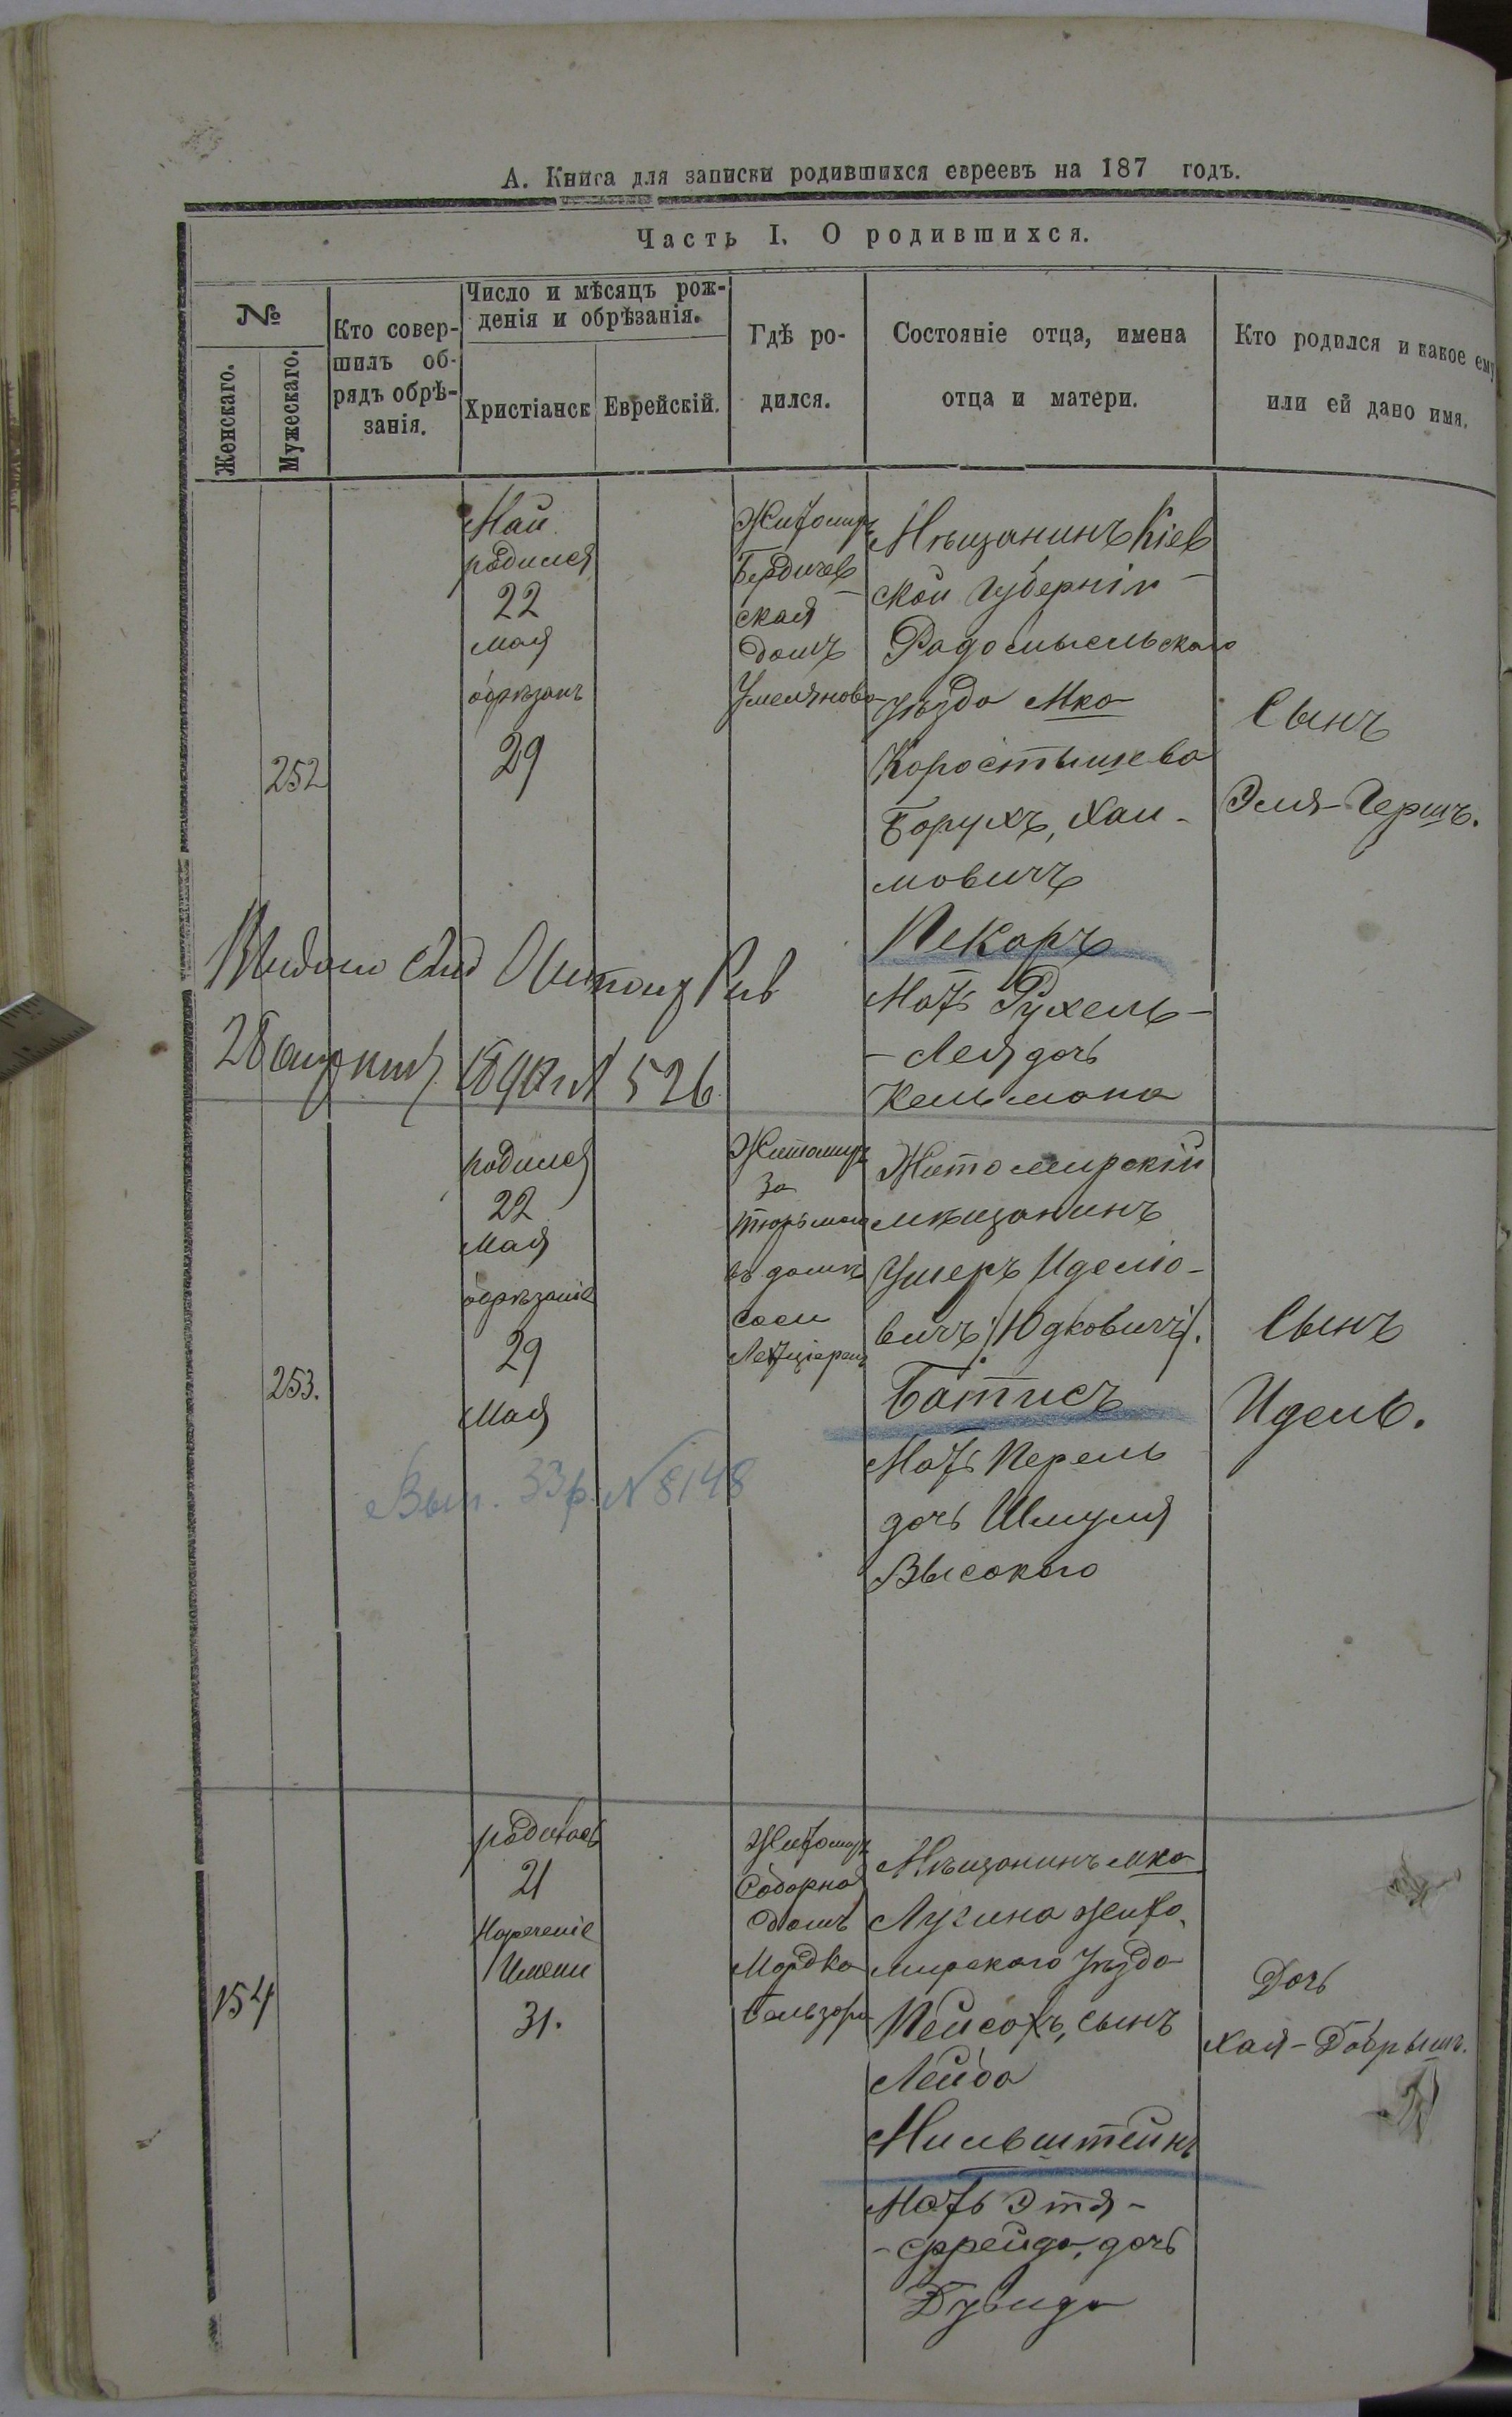 А. Книга для записки родившихся евреевъ на 187 годъ.
Часть I. О родившихся.
№
Женскаго.
Мужескаго.
Кто совер-
шилъ об-
рядъ обрѣ-
занія.
Число и мѣсяцъ рож-
денія и обрѣзанія.
Христіанск
Еврейскій.
Гдѣ ро-
дился.
Состояніе отца, имена
отца и матери.
Кто родился и какое ему
или ей дано имя.
252
Май
родился
22
мая
обрѣзанъ
29
Житомиръ
Бердичев-
ская
домъ
Умелянова
Мѣщанинъ Кіев
ской Губерніи
Радомысльскаго
уѣзда Мка
Коростышева
Борухъ, Хаи-
мовичъ
Пекаръ
Мать Рухель-
- Лея дочь
Кельмана
Сынъ
Эля-Гершъ.
28 № 526
253.
родился
22
Мая
обрѣзаніе
29
Мая
Житомиръ
за
тюрьмою
въ домѣ
Мѣщанинъ
Житомирскій
мѣщанинъ
Ушеръ Идель-
вичъ (Юдковичъ).
Батисъ
Мать Перель
дочь Шмуля
Высокаго
Сынъ
Идель.
Вып. 33 р. № 8148
154
родилась
21
Нареченіе
Имени
31.
Житомиръ
Соборная
домъ
Мордка
Мѣщанинъ мка
Лугина Жито-
мирскаго уѣзда
Пейсахъ, сынъ
Лейба
Мильштейнъ
Мать Этя-
-Фрейда, дочь
Дувида
Дочь
Хая-Добрышъ.